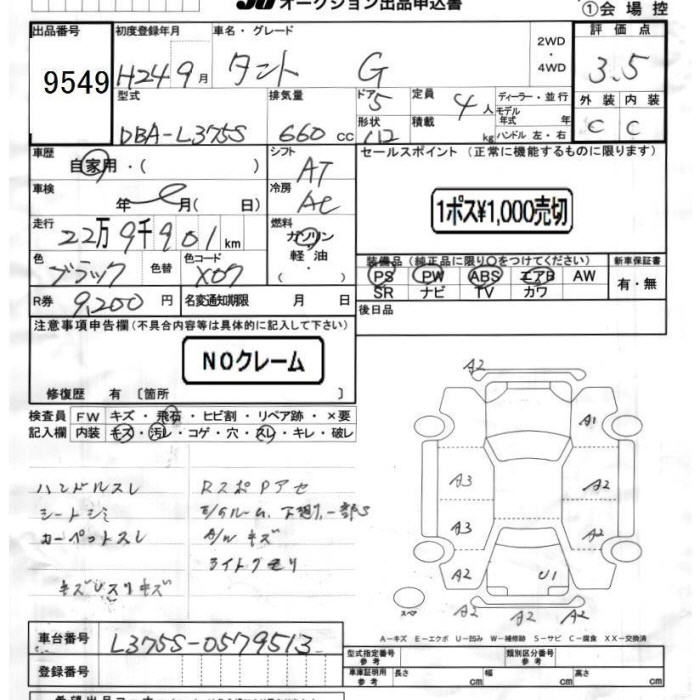 オークション出品申込書
①会場控
出品番号 初度登録年月 車名・グレード 2WD・4WD 評価点
9549 H24 9月 タント G 3.5
型式 排気量 ドア 定員 ディーラー・並行 外装 内装
DBA-L375S 660cc 5 4人 モデル年式 年 C C
形状 積載 kg ハンドル 左・右
車歴 シフト セールスポイント (正常に機能するものに限ります)
自家用・( ) AT
車検 冷房 1ポス¥1,000売切
年 月( 日) AC
走行 燃料
22万9千901km ガソリン
軽油
・( )
装備品(純正品に限り○をつけてください) 新車保証書
色 色替 色コード PS PW ABS エアB AW 有・無
ブラック X07 SR ナビ TV カワ
R券 9,200円 名変通知期限 月 日
後日品
注意事項申告欄(不具合内容等は具体的に記入して下さい)
NOクレーム
修復歴 有〔箇所 〕
検査員 FW キズ・飛石・ヒビ割・リペア跡・×要
記入欄 内装 キズ・汚レ・コゲ・穴・スレ・キレ・破レ
ハンドルスレ
シートシミ
カーペットスレ
キズUスリキズ
RスポPアセ
E/Gルーム、下廻り、一部S
A/Wキズ
ライトクモリ
A2
A1
A3 A2
A3 A2
A2 U1 A2
A2 A2
スペ
A-キズ E-エクボ U-凹み W-補修跡 S-サビ C-腐食 XX-交換済
車台番号 L375S-0579513
登録番号
型式指定番号 参考 類別区分番号 参考
車庫証明用 参考 長さ cm 幅 cm 高さ cm